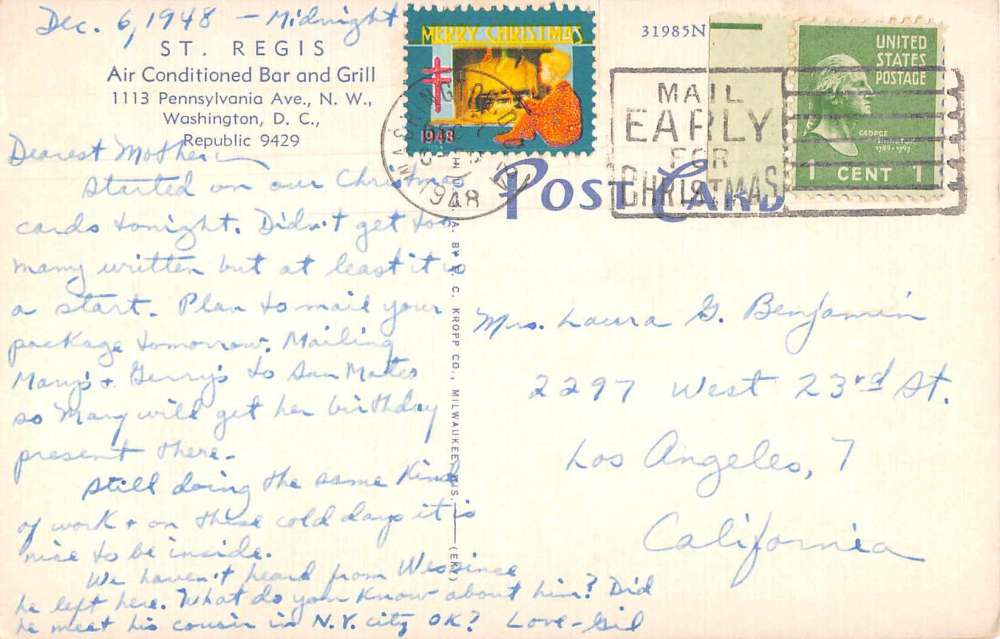 Dec. 6, 1948 - Midnight
ST. REGIS
Air Conditioned Bar and Grill
1113 Pennsylvania Ave., N. W.,
Washington, D. C.,
Republic 9429
MERRY CHRISTMAS
1948
WASHINGTON
1948
31985N
MAIL
EARLY
FOR
CHRISTMAS
UNITED
STATES
POSTAGE
GEORGE
WASHINGTON
1789-1797
1 CENT 1
POST CARD
Dearest Mother -
Started on our Christmas
cards tonight. Didn't get too
many written but at least it is
a start. Plan to mail your
package tomorrow. Mailing
Mary's + Gerry's to San Mateo
so Mary will get her birthday
present there.
Still doing the same kind
of work + on these cold days it is
nice to be inside.
We haven't heard from Wes since
he left here. What do you know about him? Did
he meet his cousin in N.Y. city OK? Love - Gil
BY E. C. KROPP CO., MILWAUKEE, WIS.
(EKC)
Mrs. Laura G. Benjamin
2297 West 23rd St.
Los Angeles, 7
California